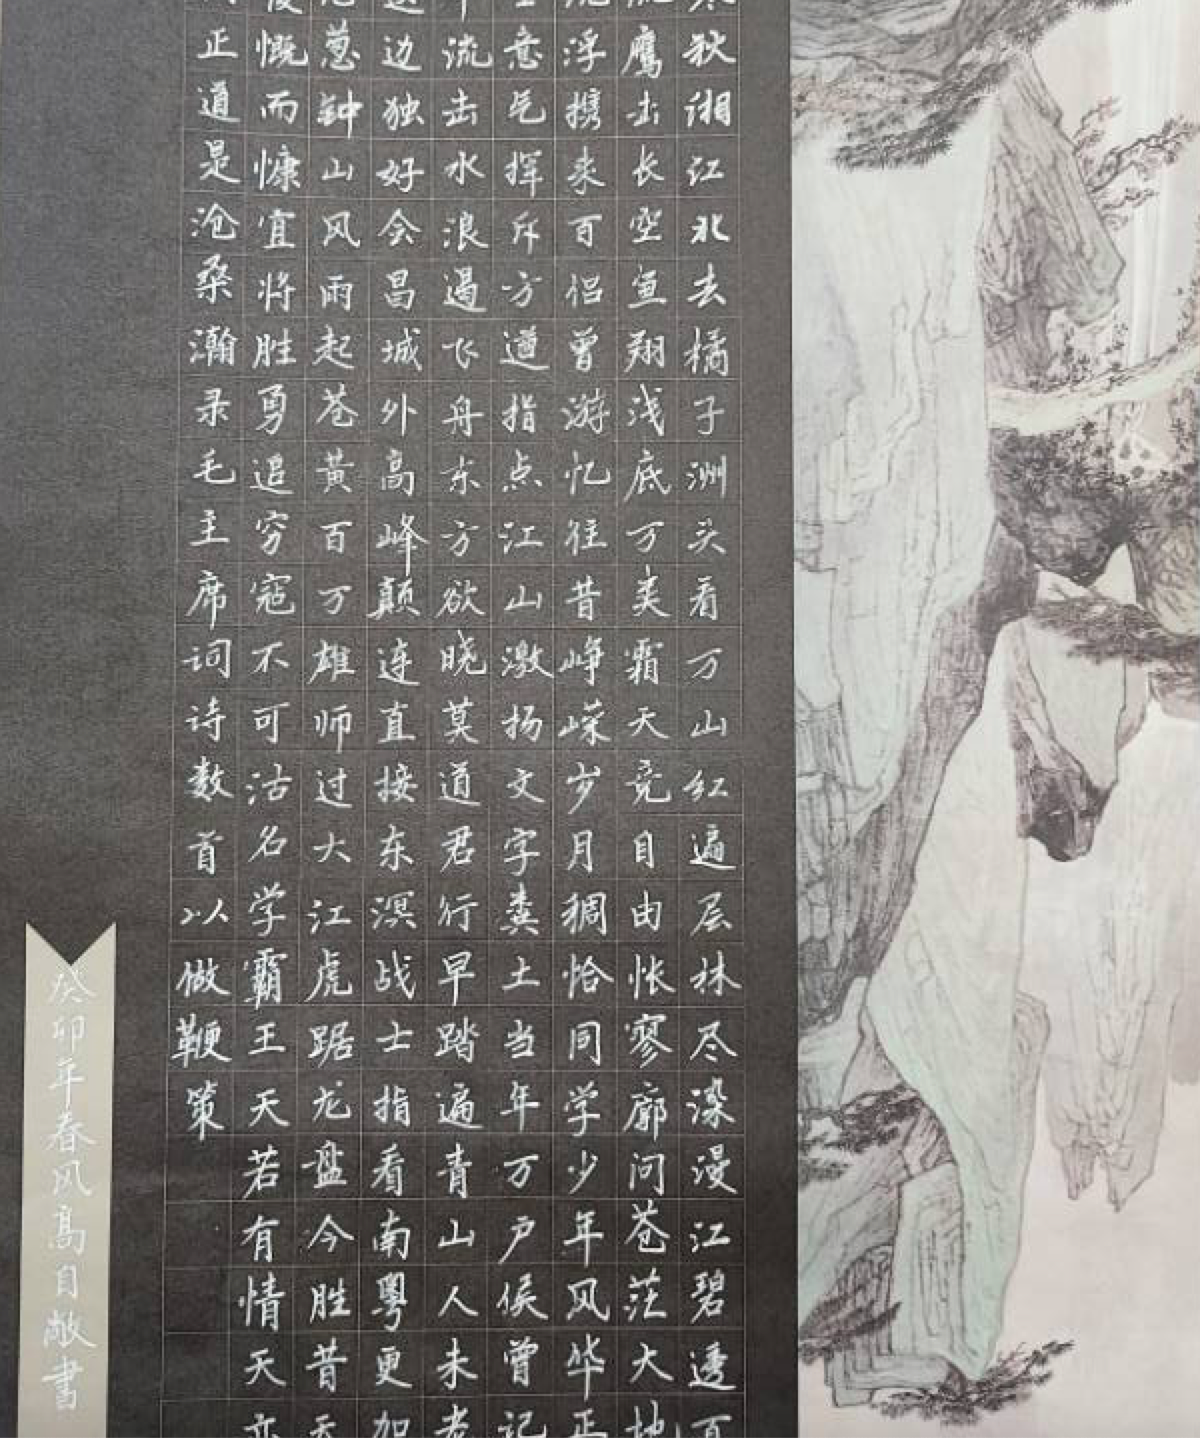 秋湘江北去橘子洲头看万山红遍层林尽染漫江碧透百
鹰击长空鱼翔浅底万美霜天竞自由怅寥廓问苍茫大地
浮携来百侣曾游忆往昔峥嵘岁月稠恰同学少年风华正
意气挥斥方遒指点江山激扬文字粪土当年万户侯曾记
流击水浪遏飞舟东方欲晓莫道君行早踏遍青山人未老
边独好会昌城外高峰颠连直接东溟战士指看南粤更加
葱钟山风雨起苍黄百万雄师过大江虎踞龙盘今胜昔天
慨而慷宜将胜勇追穷寇不可沽名学霸王天若有情天亦
正道是沧桑瀚录毛主席词诗数首以做鞭策
癸卯年春风高自敞書